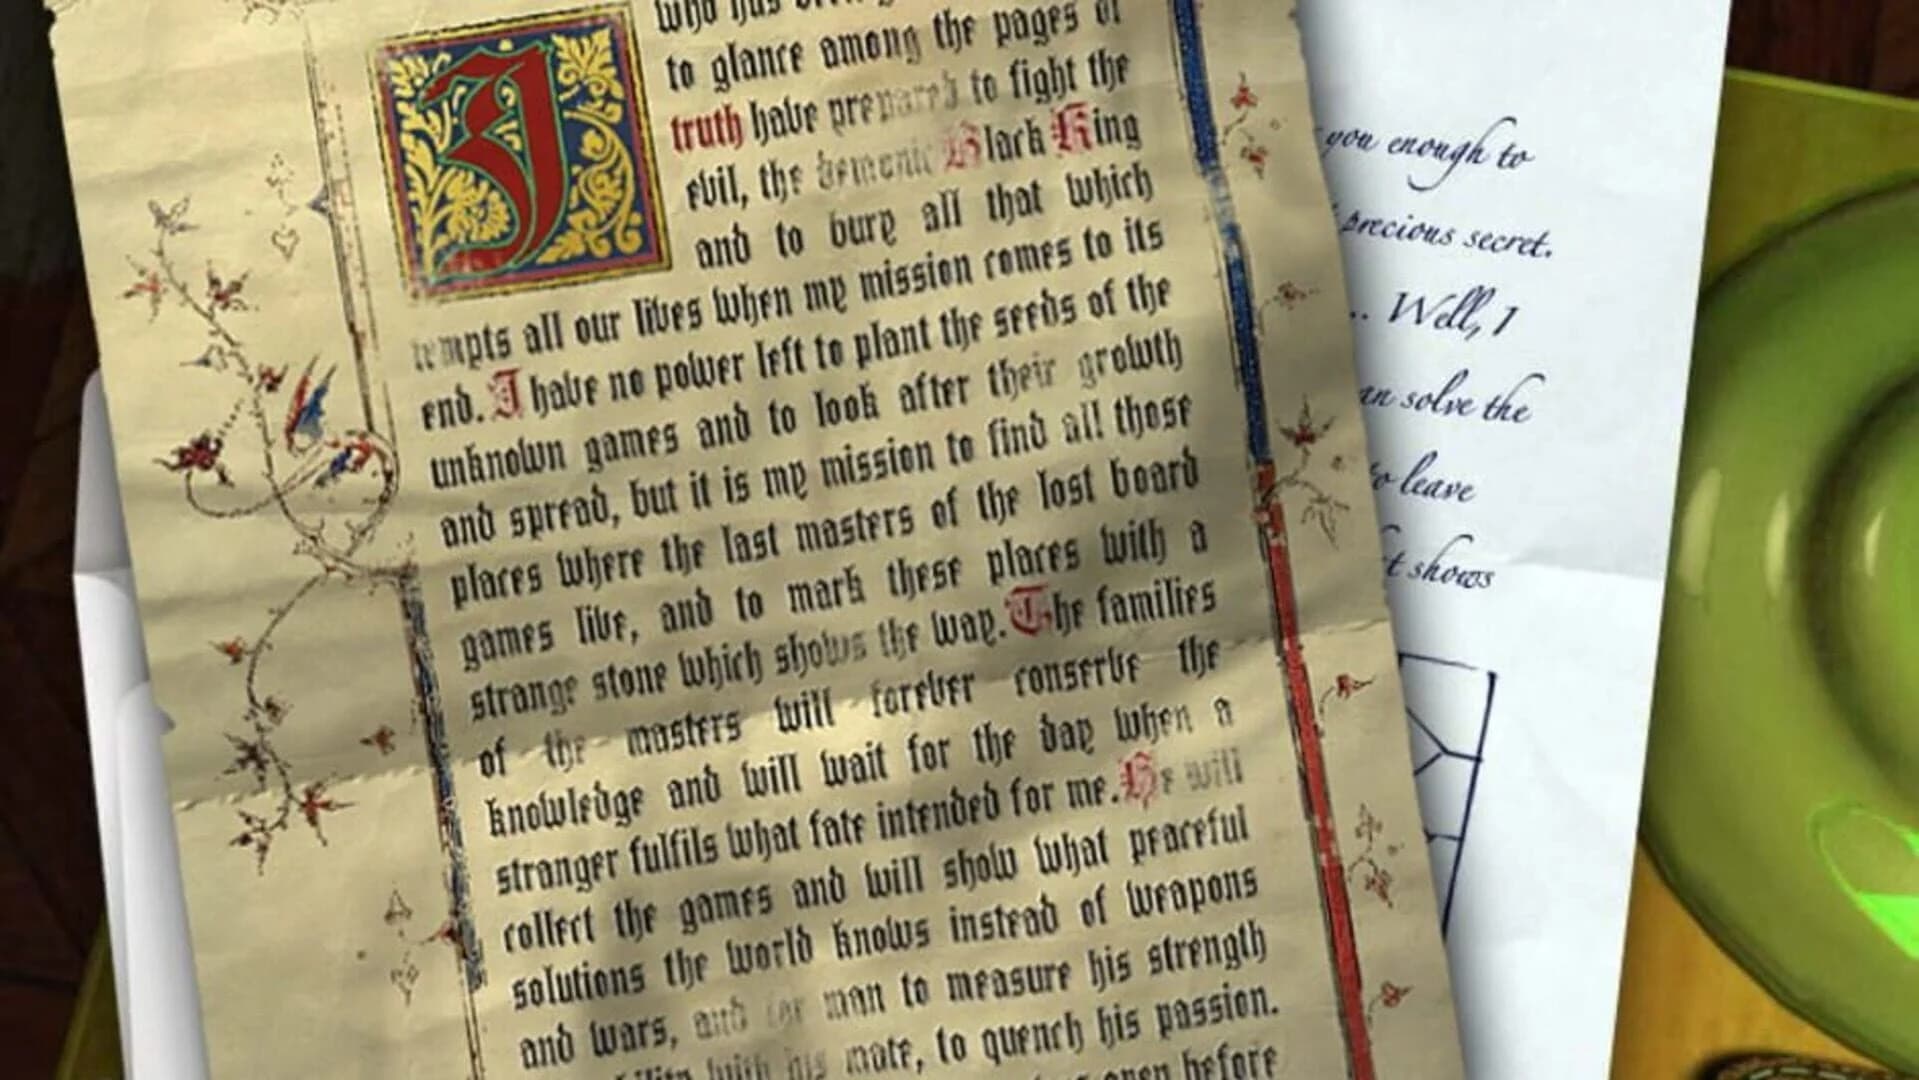 I
who has been
to glance among the pages of
truth have prepared to fight the
evil, the demonic Black King
and to bury all that which
tempts all our lives when my mission comes to its
end. I have no power left to plant the seeds of the
unknown games and to look after their growth
and spread, but it is my mission to find all those
places where the last masters of the lost board
games live, and to mark these places with a
strange stone which shows the way. The families
of the masters will forever conserve the
knowledge and will wait for the day when a
stranger fulfils what fate intended for me. He will
collect the games and will show what peaceful
solutions the world knows instead of weapons
and wars, and for man to measure his strength
with his mate, to quench his passion.
open before
you enough to
precious secret.
.. Well, I
solve the
to leave
shows